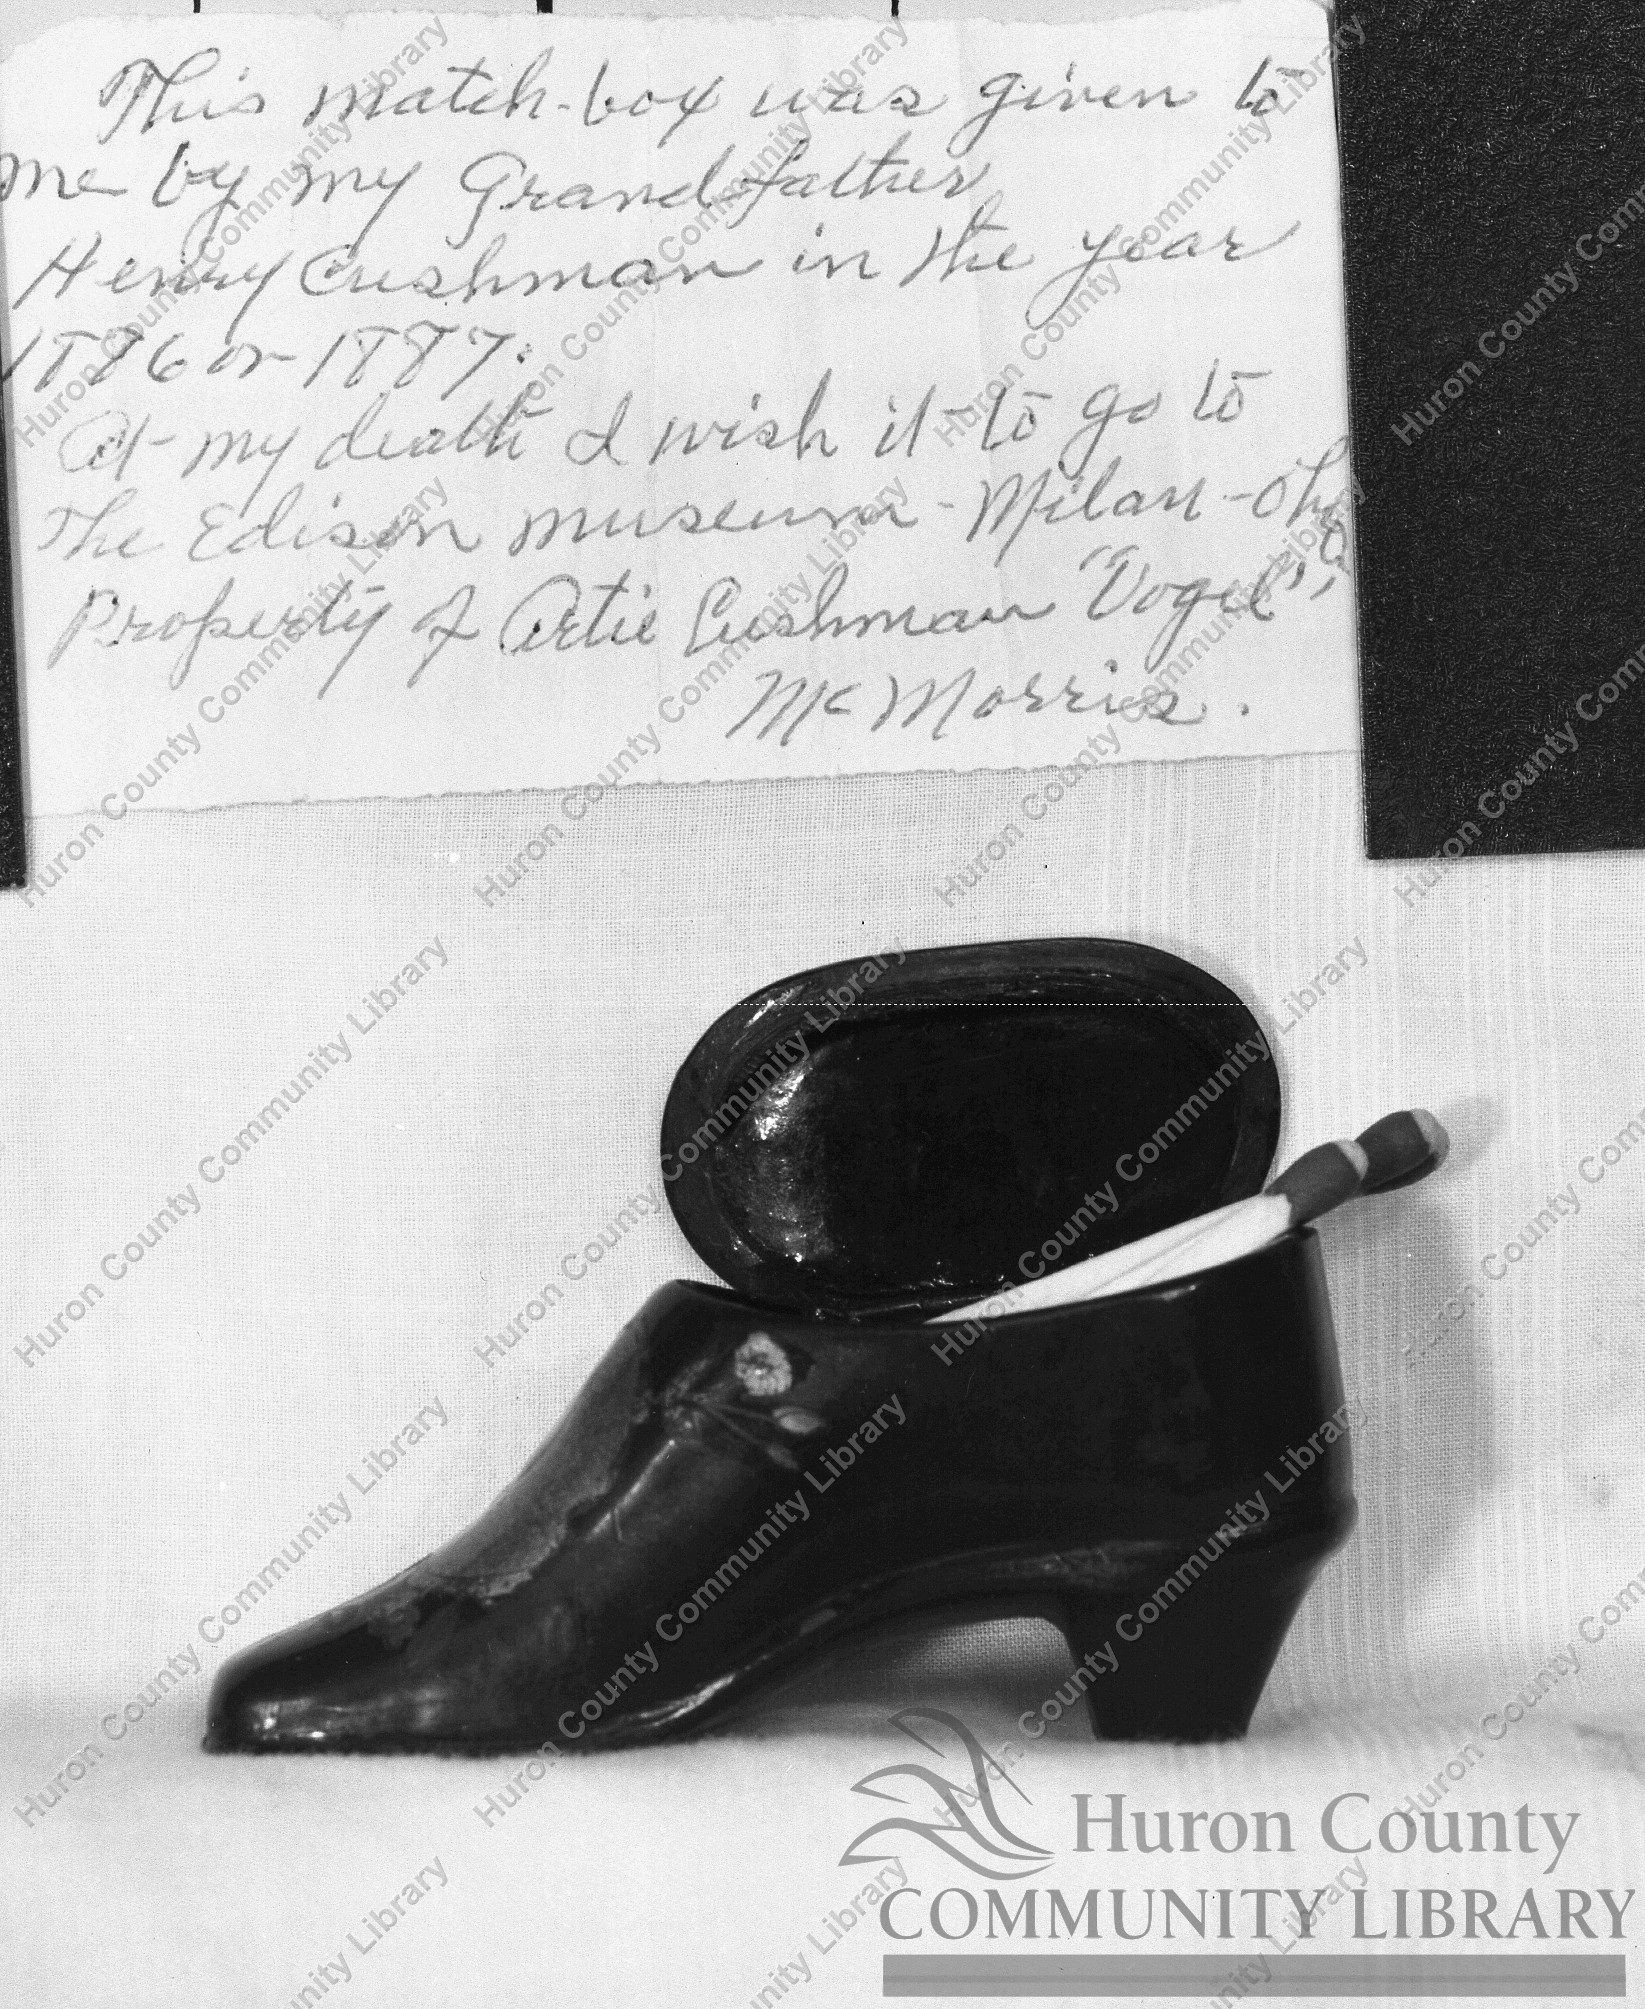 This match-box was given to
me by my Grandfather
Henry Cushman in the year
1886 or 1887.
At my death I wish it to go to
The Edison museum - Milan - Ohio
Property of Artie Cushman "Vogel"
McMorris.
Huron County
COMMUNITY LIBRARY
Huron County Community Library